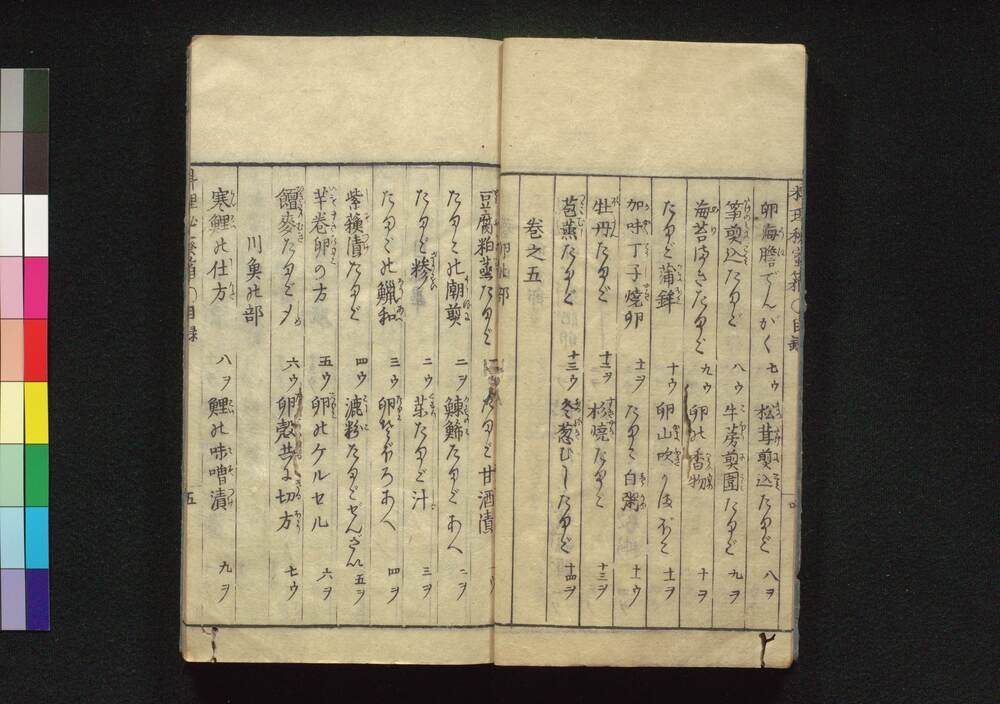 卵海膽でんがく 七ウ 松茸煎込たまご 八ヲ
筝煎込たまご 八ウ 牛蒡煎園たまご 九ヲ
海苔まきたまご 九ウ 卵の香物 十ヲ
たまご蒲鉾 十ウ 卵山吹かまぼこ 十一ヲ
加味丁子焼卵 十一ヲ たまご白粥 十一ウ
牡丹たまご 十三ヲ 杉焼たまご 十三ヲ
苞蒸たまご 十三ウ 冬葱びしたまご 十四ヲ
巻之五
豆腐粕蒸たまご たまご甘酒漬 一ウ
たまごの潮煎 二ヲ 鰊鯑たまごあへ 二ヲ
たまご糝 二ウ 菜たまご汁 三ヲ
たまごの鱲和 三ウ 卵そぼろあへ 四ヲ
紫蘓漬たまご 四ウ 漉粉たまごぜんざい 五ヲ
芋巻卵の方 五ウ 卵のケルセル 六ヲ
饘麥たまご〆 六ウ 卵殻共に切方 七ウ
川魚の部
寒鯉の仕方 八ヲ 鯉の味噌漬 九ヲ
目録
五